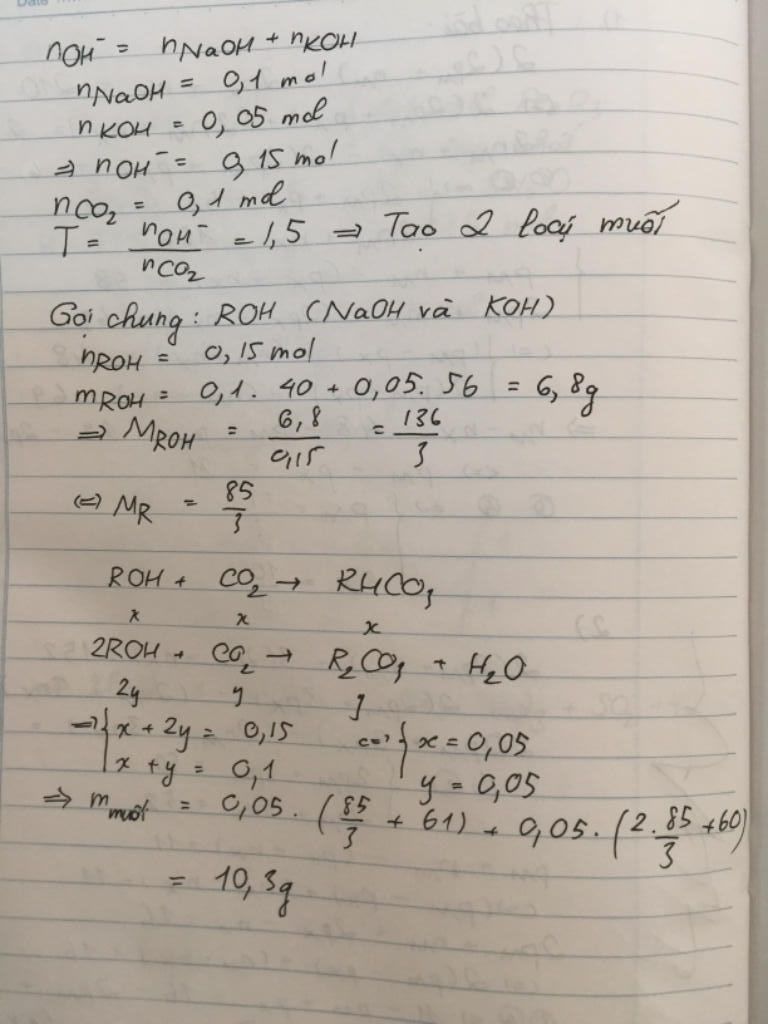 nOH⁻ = nNaOH + nKOH
nNaOH = 0,1 mol
nKOH = 0,05 mol
⇒ nOH⁻ = 0,15 mol
nCO₂ = 0,1 mol
T = nOH⁻/nCO₂ = 1,5 ⇒ Tạo 2 loại muối
Gọi chung: ROH (NaOH và KOH)
nROH = 0,15 mol
mROH = 0,1. 40 + 0,05. 56 = 6,8g
⇒ MROH = 6,8/0,15 = 136/3
(=) MR = 85/3
ROH + CO₂ → RHCO₃
x x x
2ROH + CO₂ → R₂CO₃ + H₂O
2y y y
⇒ { x + 2y = 0,15 <=> { x = 0,05
x + y = 0,1 y = 0,05
⇒ mmuối = 0,05. (85/3 + 61) + 0,05. (2. 85/3 + 60)
= 10,3g